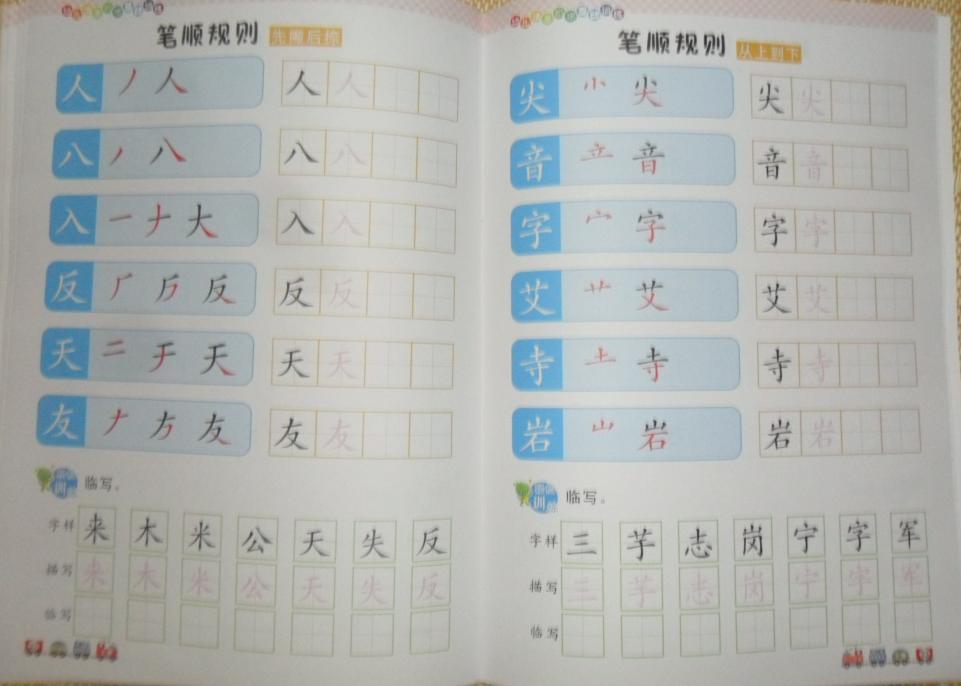 笔顺规则 先撇后捺
人 丿 人 人 人
八 丿 八 八 八
入 一 ナ 大 入 入
反 厂 反 反 反 反
天 二 于 天 天 天
友 ナ 方 友 友 友
临写。
字样 来 木 米 公 天 失 反
描写 来 木 米 公 天 失 反
临写
笔顺规则 从上到下
尖 小 尖 尖 尖
音 立 音 音 音
字 宀 字 字 字
艾 艹 艾 艾 艾
寺 土 寺 寺 寺
岩 山 岩 岩 岩
训 临写。
字样 三 芋 志 岗 宁 字 军
描写 三 芋 志 岗 宁 字 军
临写